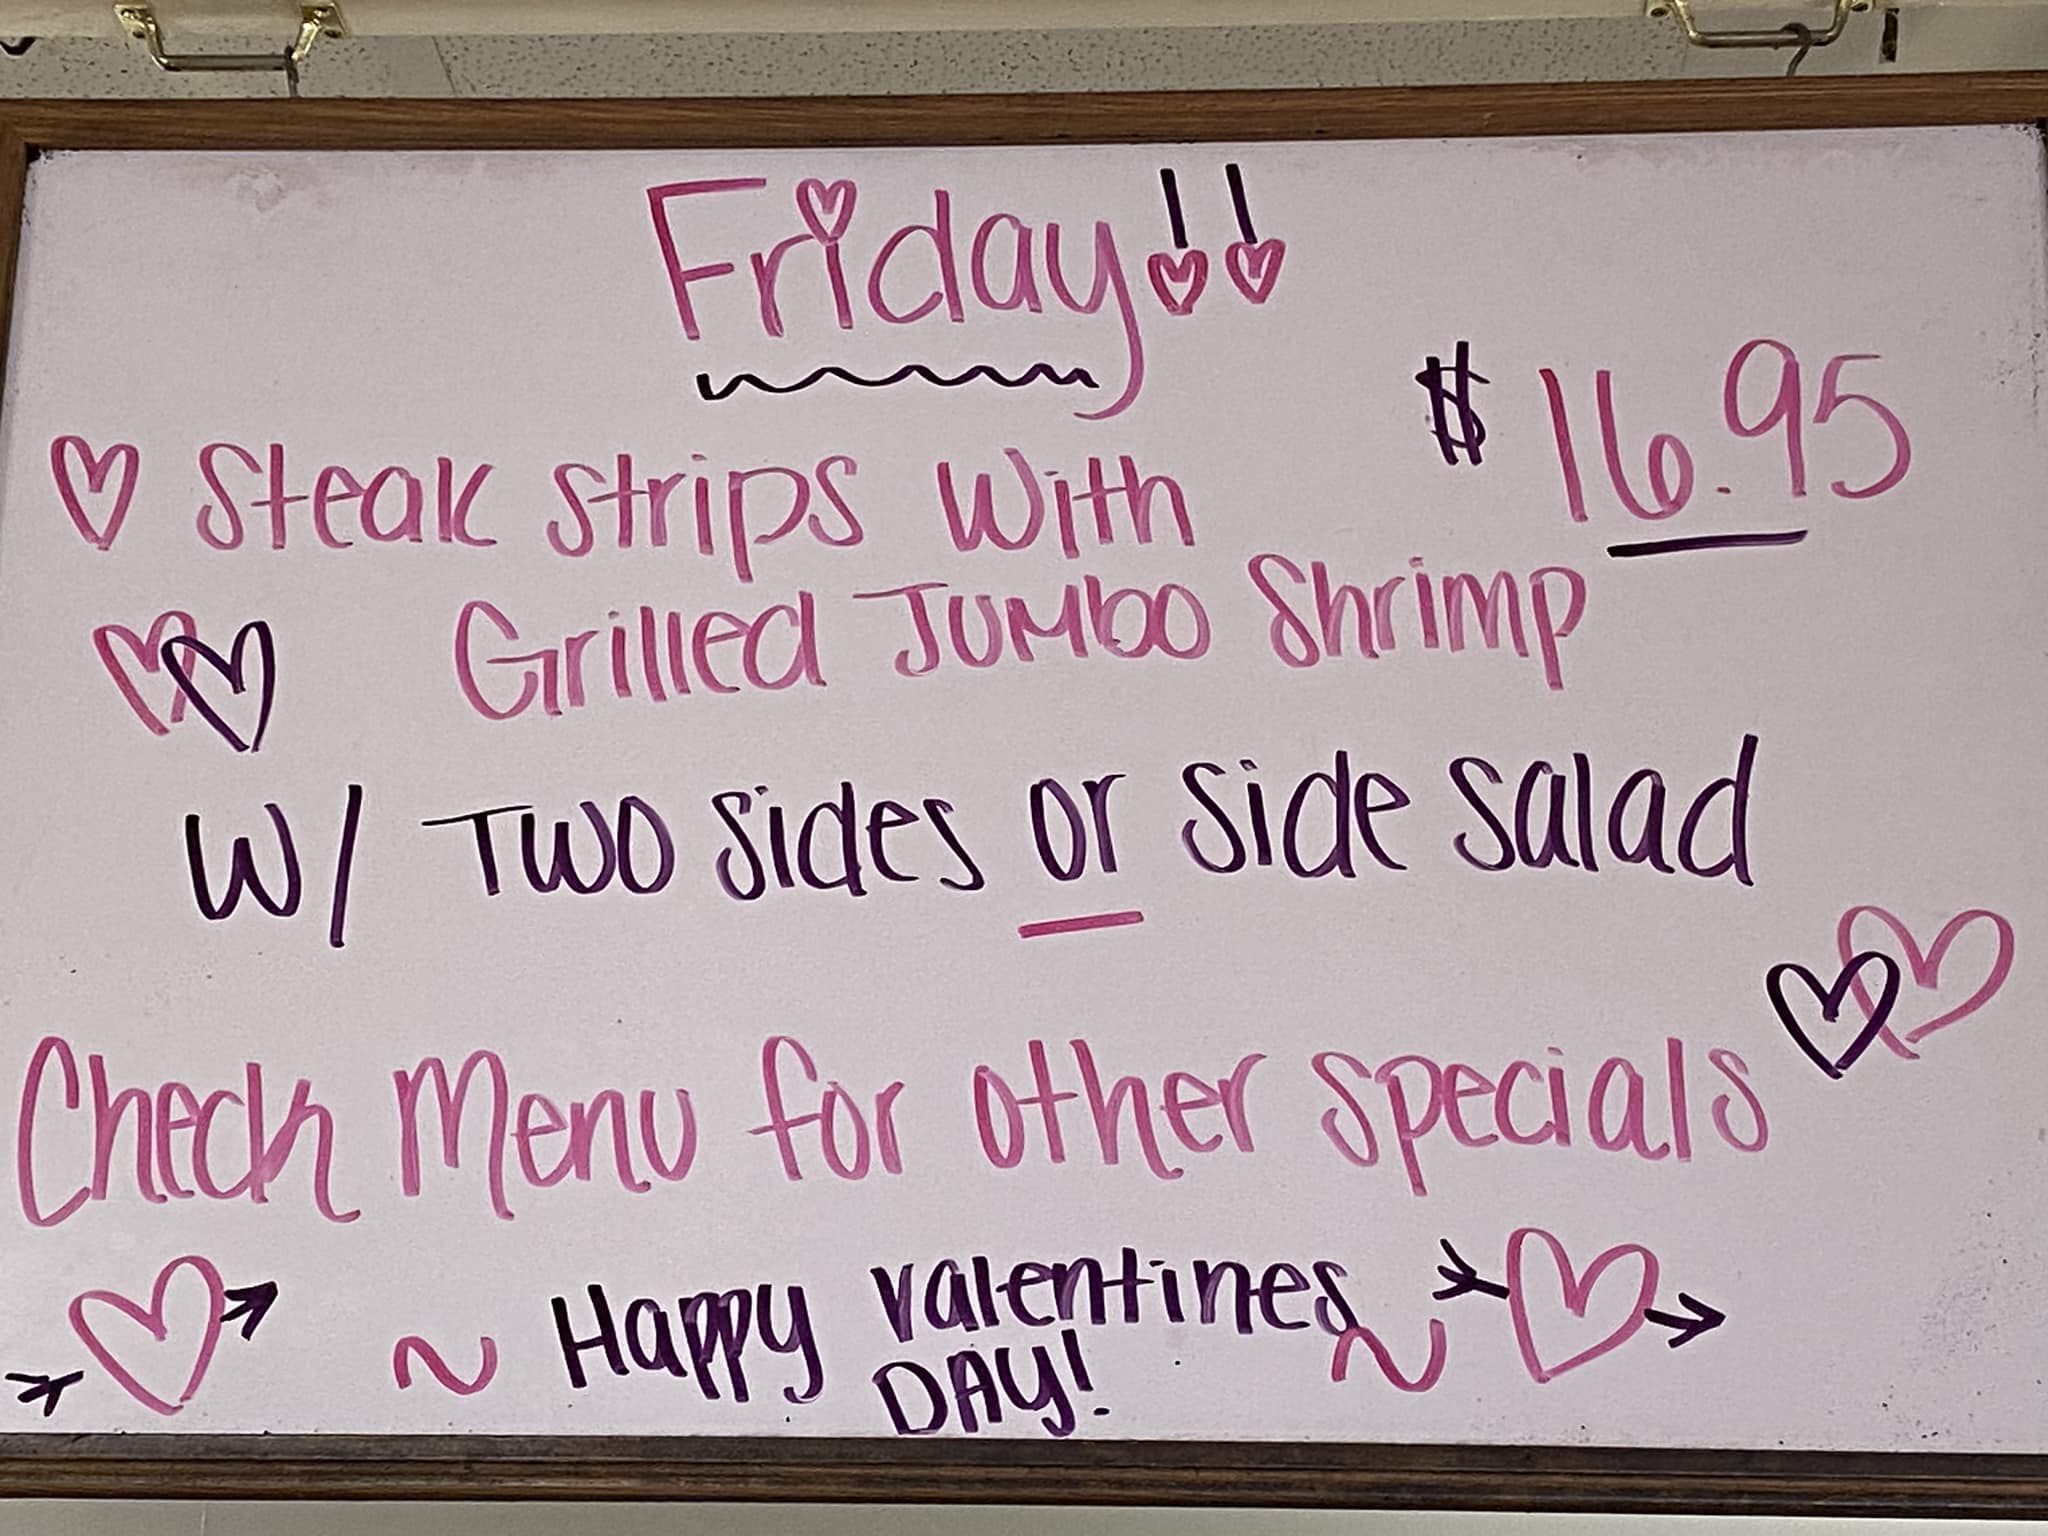 Friday!!
$16.95
Steak strips With
Grilled Jumbo Shrimp
W/ Two sides or side salad
Check Menu for other specials
~ Happy Valentines ~
DAY!